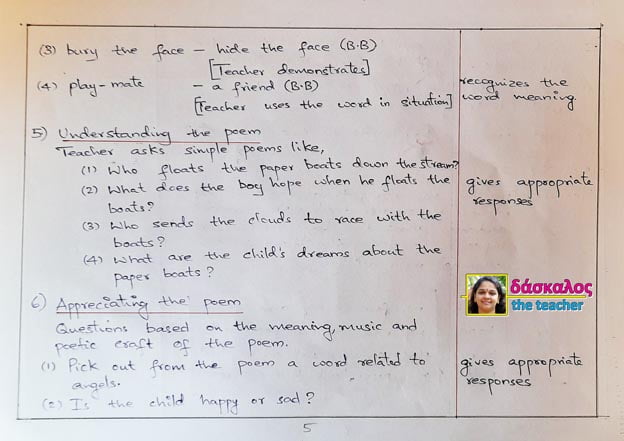 (3) bury the face – hide the face (B.B)
[Teacher demonstrates]
(4) play-mate – a friend (B.B)
[Teacher uses the word in situation]
recognizes the
word meaning.
5) Understanding the poem
Teacher asks simple poems like,
(1) Who floats the paper boats down the stream?
(2) What does the boy hope when he floats the
boats?
gives appropriate
responses
(3) Who sends the clouds to race with the
boats?
(4) What are the child's dreams about the
paper boats?
δάσκαλος
the teacher
6) Appreciating the poem
Questions based on the meaning, music and
poetic craft of the poem.
(1) Pick out from the poem a word related to
angels.
gives appropriate
responses
(2) Is the child happy or sad?
5